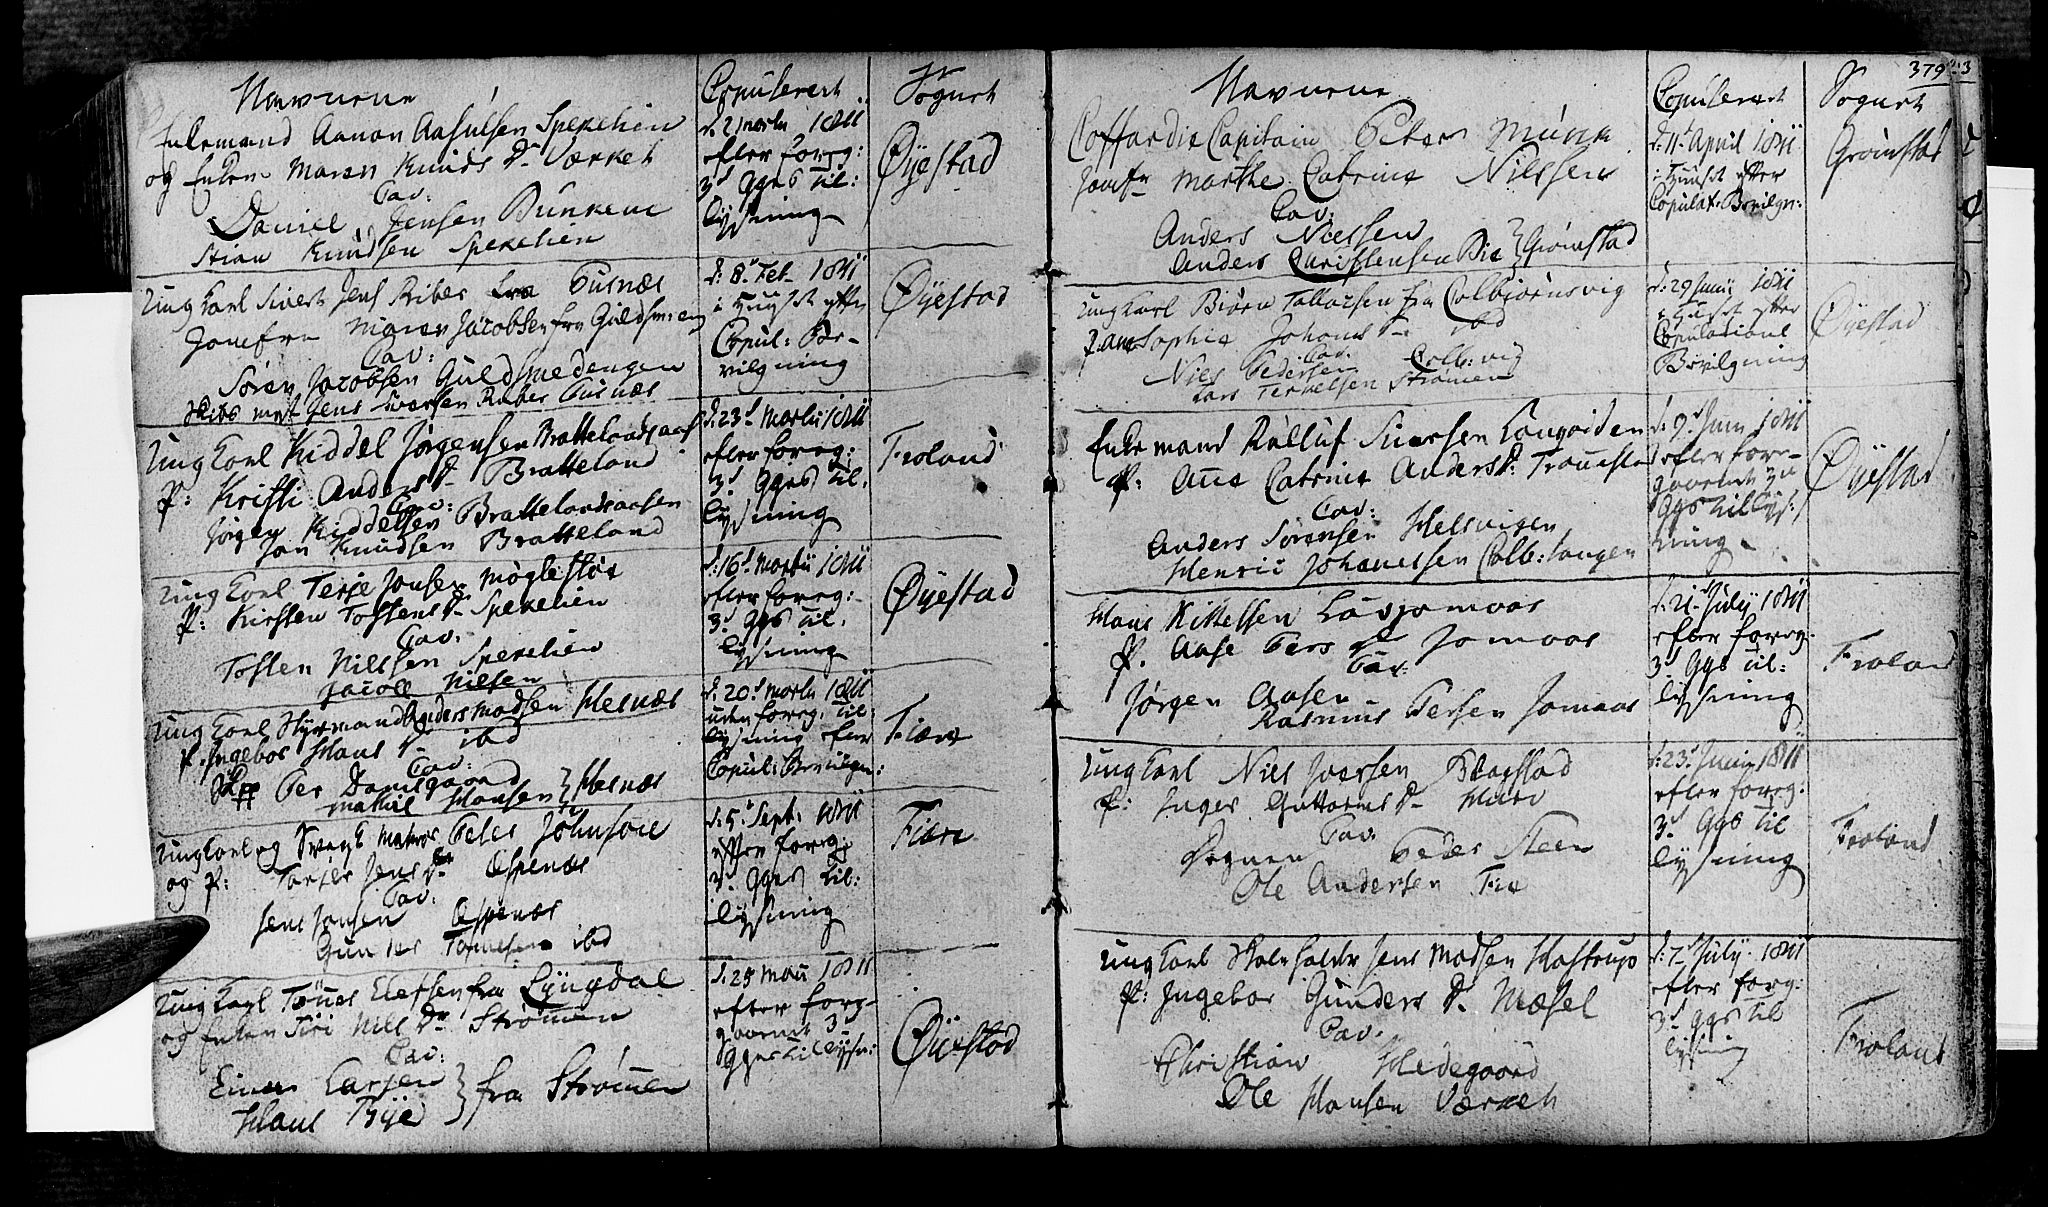 Navnene
Copuleret
Sognet
Enkemand Aanon Aasulsen Spekelien
og Enken Maren Knuds D. Værket
Cav:
Daniel Jensen Bunkene
Stian Knudsen Spekelien
d. 2 Martii 1811
efter foreg:
3d Ggs Til:
lysning
Øyestad
Ung Karl Sivert Jens Riber fra Gusnæs
Jomfru Maren Jacobsen fra Guldsmeng
Cav:
Søren Jacobsen Guldsmedengen
Jens Iversen Riber Gusnæs
d: 8d Feb. 1811
i Huuset efter
Copul: Be-
vilgning
Øyestad
Ung Karl Kiddel Jørgensen Brattelandsaas
P: Kristi Anders D. Bratteland
Cav:
Jørgen Kiddelsen Brattelandsaasen
Jon Knudsen Bratteland
d. 23d Martii 1811
efter foreg:
3d Ggs Til.
lysning
Froland
Ung Karl Terje Jonsen Møglestøe
P: Kirsten Tostens D. Spekelien
Cav:
Tosten Nilssen Spekelien
Jacob Nilsen
d: 16d Martii 1811
efter foreg:
3d Ggs Til.
lysning
Øyestad
Ung Karl Styrmand Anders Madsen Hesnæs
P. Ingebor Hans D. ibd
Cav:
Per Danielgaard
Mathis Hansen } Hesnæs
d. 20d Martii 1811
uden foreg. Til
lysning efter
Copul: Bevilgn:
Fiære
Ung Karl og Matros Peder Johnsen
og P: Jens D. Espenæs
Cav:
Jens Jonsen Espenæs
Gunder ibd
d. 5 Sept. 1811
efter foreg:
3. Ggs Til:
lysning
Fiære
Ung Karl Tønes Elefsen fra Lyngdal
og Enken Siri Nils D. Strømen
Cav:
Einer Larsen
Hans Bye } fra Strømen
d: 25 Maii 1811
efter forg-
gaaende 3
Ggs tillysn:
Øyestad
379
Navnene
Copuleret
Sognet
Coffardie Capitain Peter Munk
Jomfr Marthe Catrine Nielsen
Cav:
Anders Nielsen
Anders Christensen Bie } Grømstad
d. 11 April 1811
i Huuset efter
Copulat: Bevilgn:
Grømstad
Ung Karl Biørn Tallacsen fra Colbiørnsvig
P. Sophie Johans D. ibd
Cav.
Niels Pedersen Colb:vig
Lars Terkelsen Strømen
d. 29 Junii 1811
i Huset efter
Copulations
Bevilgning
Øyestad
Enkemand Rolluf Siversen
P: Ane Catrine Anders D.
Cav:
Anders Sørensen Helsvigen
Henric Johannessen Colb:tangen
d. 9d Juni 1811
efter fore-
gaaende 3d
Ggs tillys:
ning.
Øyestad
Hans Kittelsen Jomaas
P. Aase Pers D. Jomaas
Cav:
Jørgen Aasen
Rasmus Persen Jomaas
d. 21d July 1811
efter foreg:
3d Ggs Til:
lysning
Froland
Ung Karl Niels Iversen Blagstad
P: Inger Guttorms D.
Cav.
Peder Steen
Ole Andersen
d. 23d Juni 1811
efter foreg:
3d Ggs Til
lysning
Froland
Ung Karl Skoleholder Jens Madsen Hastrup
P: Ingebor Gunders D. Mæsel
Cav.
Christian Hedegaard
Ole Hansen Værket
d. 7d July 1811
efter foreg:
3d Ggs Til
lysning
Froland